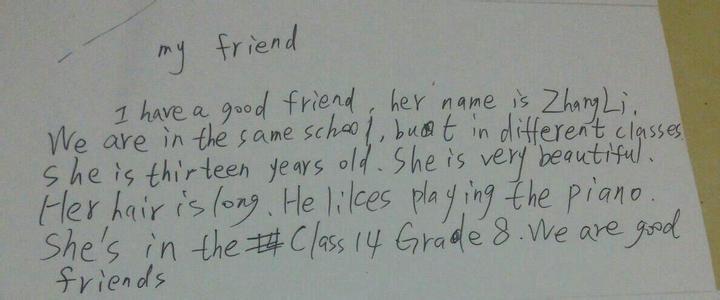 my friend
I have a good friend, her name is ZhangLi.
We are in the same school, but in different classes.
She is thirteen years old. She is very beautiful.
Her hair is long. He likes playing the piano.
She's in the Class 14 Grade 8. We are good
friends